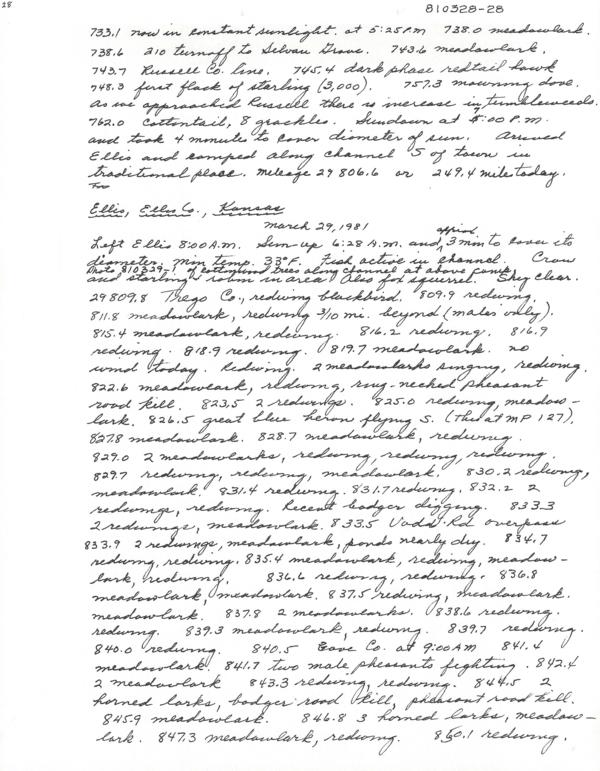 28
810328-28
733.1 now in constant sunlight. at 5:25 P.M. 738.0 meadowlark.
738.6 210 turnoff to Selvan Grove. 743.6 meadowlark.
743.7 Russell Co. line. 745.4 dark phase redtail hawk
748.3 first flock of starling (3,000). 757.3 mourning dove.
As we approached Russell there is increase in tumbleweeds.
762.0 cottontail, 8 grackles. Sundown at :00 P.M.
and took 4 minutes to cover diameter of sun. Arrived
Ellis and camped along channel S of town in
traditional place. mileage 29806.6 or 249.4 miles today.
Ellis, Ellis Co., Kansas
March 29, 1981
Left Ellis 8:00 A.M. Sun up 6:28 A.M. and approx. 3 min to cover its
diameter. min temp. 33°F. Fish active in channel. Crow
Photo 810329-1 of cottonwood trees along channel at above camp
and starling room in area. Also fox squirrel. Sky clear.
29809.8 Trego Co., redwing blackbird. 809.9 redwing.
811.8 meadowlark, redwing 3/10 mi. beyond (males only).
815.4 meadowlark, redwing. 816.2 redwing. 816.9
redwing. 818.9 redwing. 819.7 meadowlark. no
wind today. Redwing. 2 meadowlarks singing, redwing.
822.6 meadowlark, redwing, ring-necked pheasant
road kill. 823.5 2 redwings. 825.0 redwing, meadow-
lark. 826.5 great blue heron flying S. (This at MP 127).
827.8 meadowlark. 828.7 meadowlark, redwing.
829.0 2 meadowlarks, redwing, redwing, redwing.
829.7 redwing, redwing, meadowlark. 830.2 redwing,
meadowlark. 831.4 redwing. 831.7 redwing. 832.2 2
redwings, redwing. Recent badger digging. 833.3
2 redwings, meadowlark. 833.5 Voda Rd. overpass
833.9 2 redwings, meadowlark, ponds nearly dry. 834.7
redwing, redwing. 835.4 meadowlark, redwing, meadow-
lark, redwing. 836.6 redwing, redwing. 836.8
meadowlark, meadowlark. 837.5 redwing, meadowlark.
meadowlark. 837.8 2 meadowlarks. 838.6 redwing.
redwing. 839.3 meadowlark, redwing. 839.7 redwing.
840.0 redwing. 840.5 Gove Co. at 9:00 AM 841.4
meadowlark. 841.7 two male pheasants fighting. 842.4
2 meadowlark 843.3 redwing, redwing. 844.5 2
horned larks, badger road kill, pheasant road kill.
845.9 meadowlark. 846.8 3 horned larks, meadow-
lark. 847.3 meadowlark, redwing. 850.1 redwing.